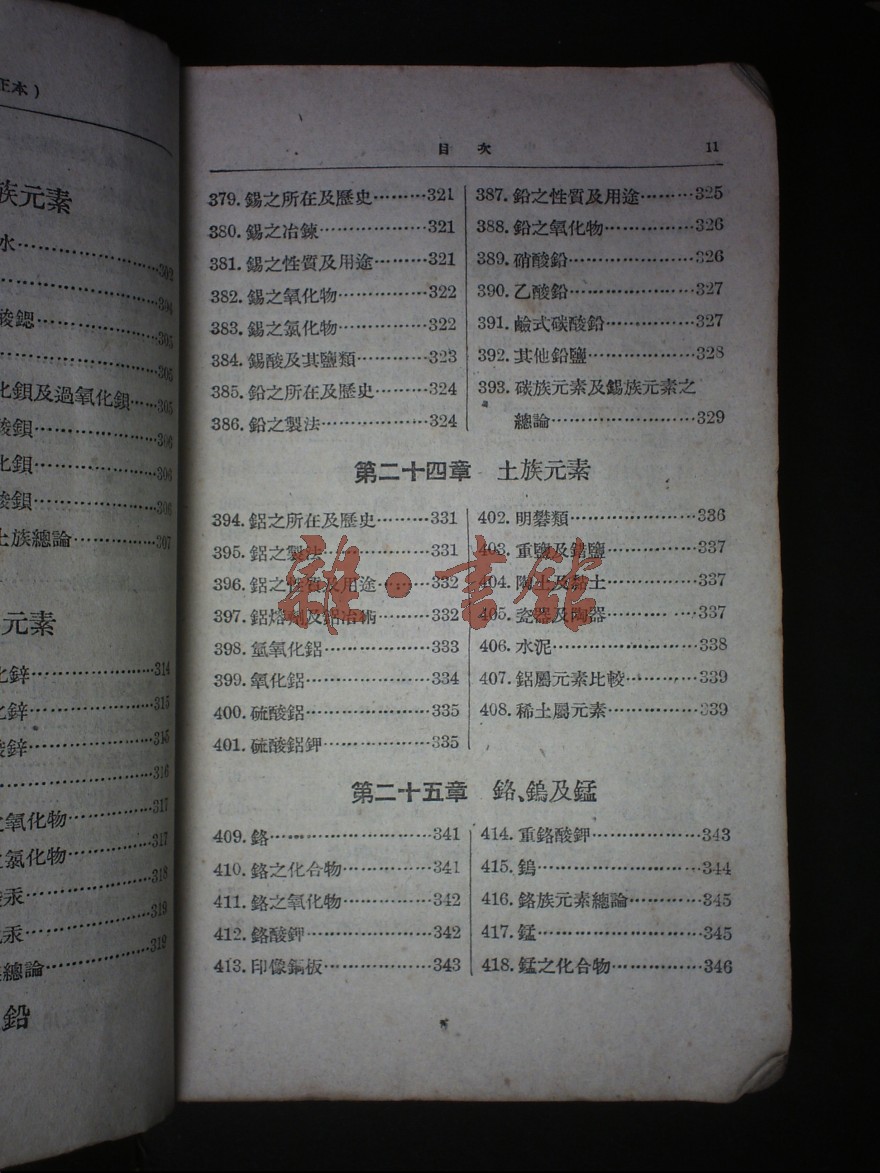 正本）
族元素
水…………302
…………304
酸鍶…………305
…………305
化鋇及過氧化鋇……305
酸鋇…………306
化鋇…………306
酸鋇…………306
土族總論…………307
元素
化鋅…………314
化鋅…………315
酸鋅…………315
…………316
之氧化物…………317
之氯化物…………317
汞…………318
汞…………319
族總論…………319
鉛
目　次　11
379. 錫之所在及歷史………321
380. 錫之冶鍊…………321
381. 錫之性質及用途………321
382. 錫之氧化物…………322
383. 錫之氯化物…………322
384. 錫酸及其鹽類………323
385. 鉛之所在及歷史………324
386. 鉛之製法…………324
387. 鉛之性質及用途………325
388. 鉛之氧化物…………326
389. 硝酸鉛…………326
390. 乙酸鉛…………327
391. 鹼式碳酸鉛…………327
392. 其他鉛鹽…………328
393. 碳族元素及錫族元素之
總論…………329
第二十四章　土族元素
394. 鋁之所在及歷史………331
395. 鋁之製法…………331
396. 鋁之性質及用途………332
397. 鋁熔劑及鋁冶術………332
398. 氫氧化鋁…………333
399. 氧化鋁…………334
400. 硫酸鋁…………335
401. 硫酸鋁鉀…………335
402. 明礬類…………336
403. 重鹽及錯鹽…………337
404. 陶土及黏土…………337
405. 瓷器及陶器…………337
406. 水泥…………338
407. 鋁屬元素比較…………339
408. 稀土屬元素…………339
雜·書館
第二十五章　鉻、鎢及錳
409. 鉻…………341
410. 鉻之化合物…………341
411. 鉻之氧化物…………342
412. 鉻酸鉀…………342
413. 印像銅板…………343
414. 重鉻酸鉀…………343
415. 鎢…………344
416. 鉻族元素總論…………345
417. 錳…………345
418. 錳之化合物…………346